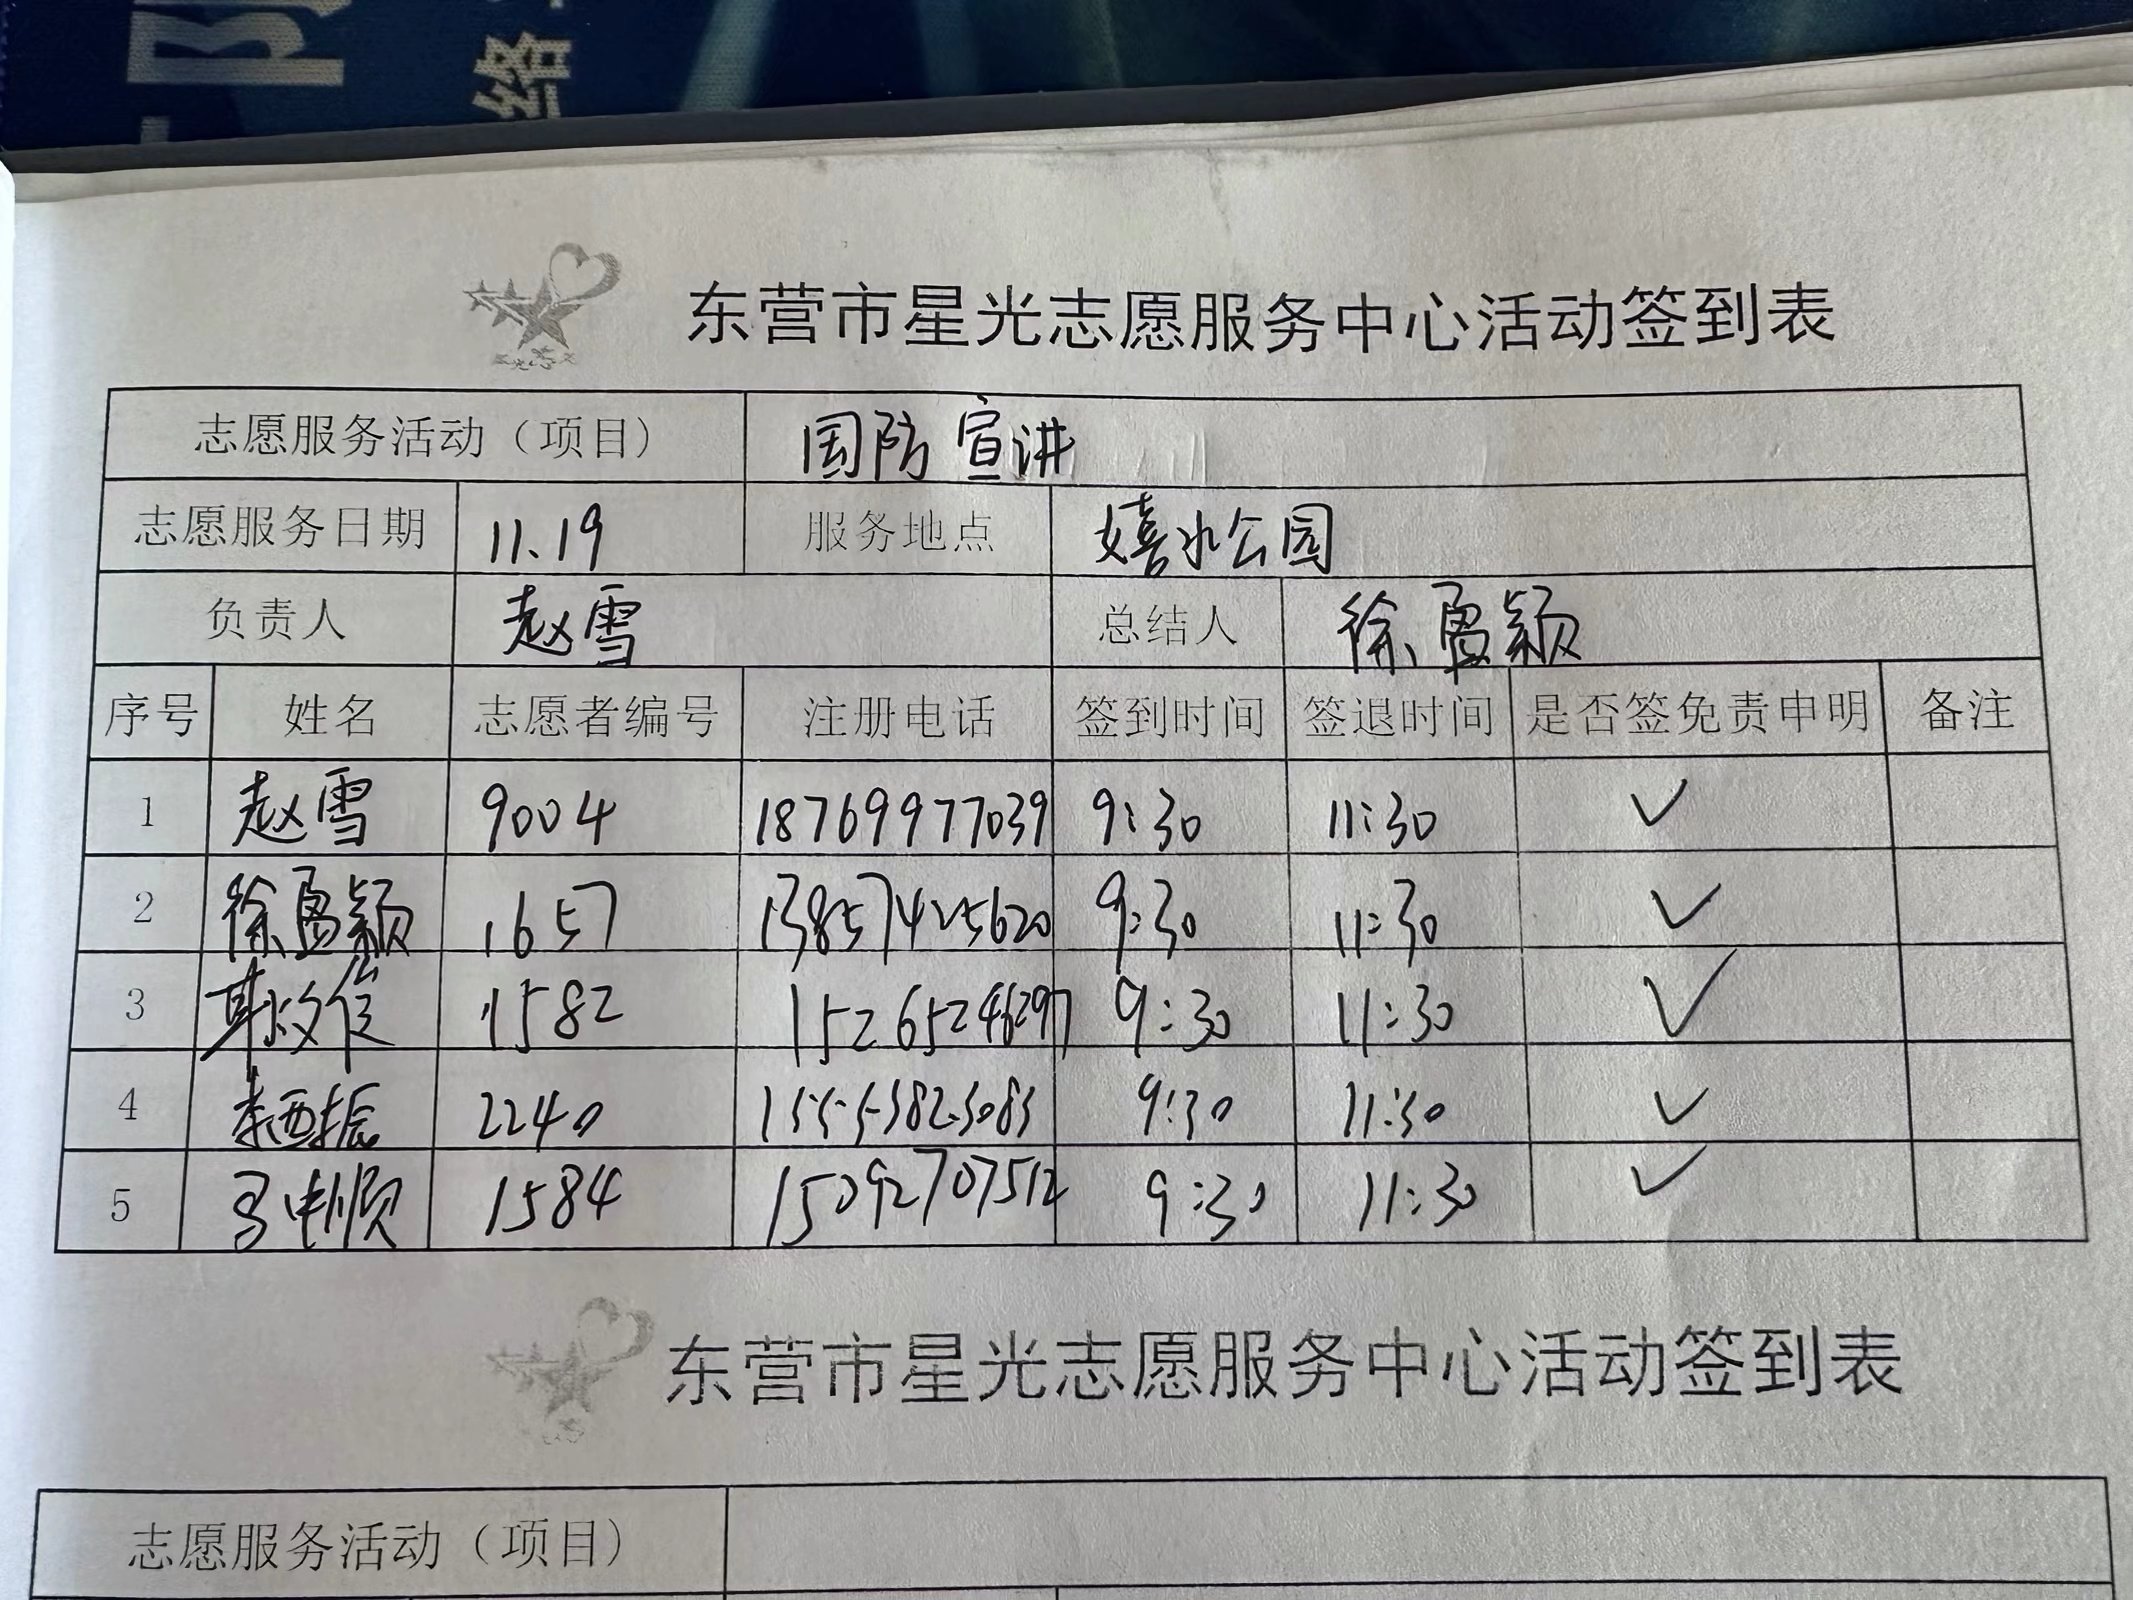 络
东营市星光志愿服务中心活动签到表
志愿服务活动（项目） 国防宣讲
志愿服务日期 11.19 服务地点 嬉水公园
负责人 赵雪 总结人 徐盈颖
序号 姓名 志愿者编号 注册电话 签到时间 签退时间 是否签免责申明 备注
1 赵雪 9004 18769977039 9:30 11:30 ✓
2 徐盈颖 1657 13857425620 9:30 11:30 ✓
3 1582 15265246297 9:30 11:30 ✓
4 2240 15553823083 9:30 11:30 ✓
5 1584 15092707512 9:30 11:30 ✓
东营市星光志愿服务中心活动签到表
志愿服务活动（项目）